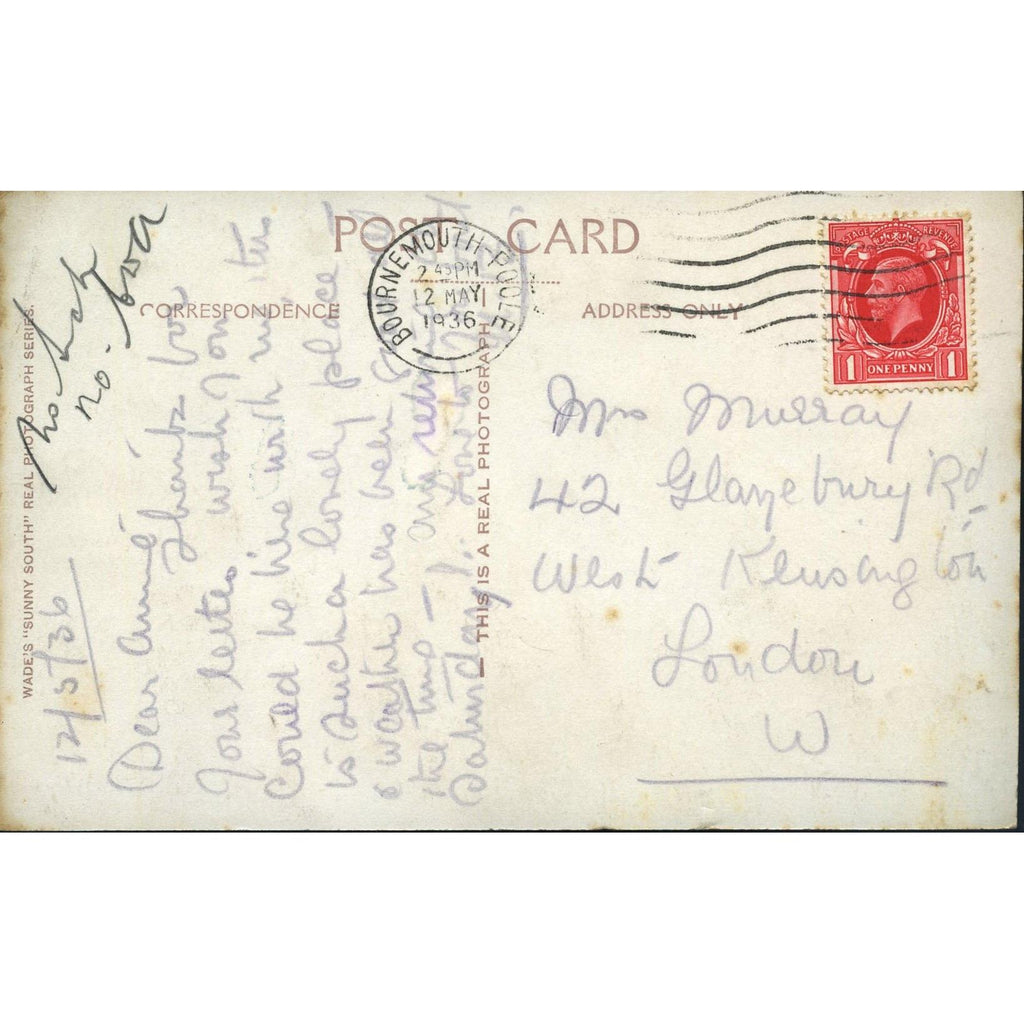 POST CARD
CORRESPONDENCE
ADDRESS ONLY
BOURNEMOUTH-POOLE
2 45 PM
12 MAY
1936
POSTAGE REVENUE
1 ONE PENNY 1
WADE'S "SUNNY SOUTH" REAL PHOTOGRAPH SERIES.
THIS IS A REAL PHOTOGRAPH
no.
12/5/36
Dear Annie Thanks for
your letter wish I one
Could be here with me this
is such a lonely place
& weather has been
the time - am
Saturday.
Mrs Murray
42 Glazebury Rd
West Kensington
London
W